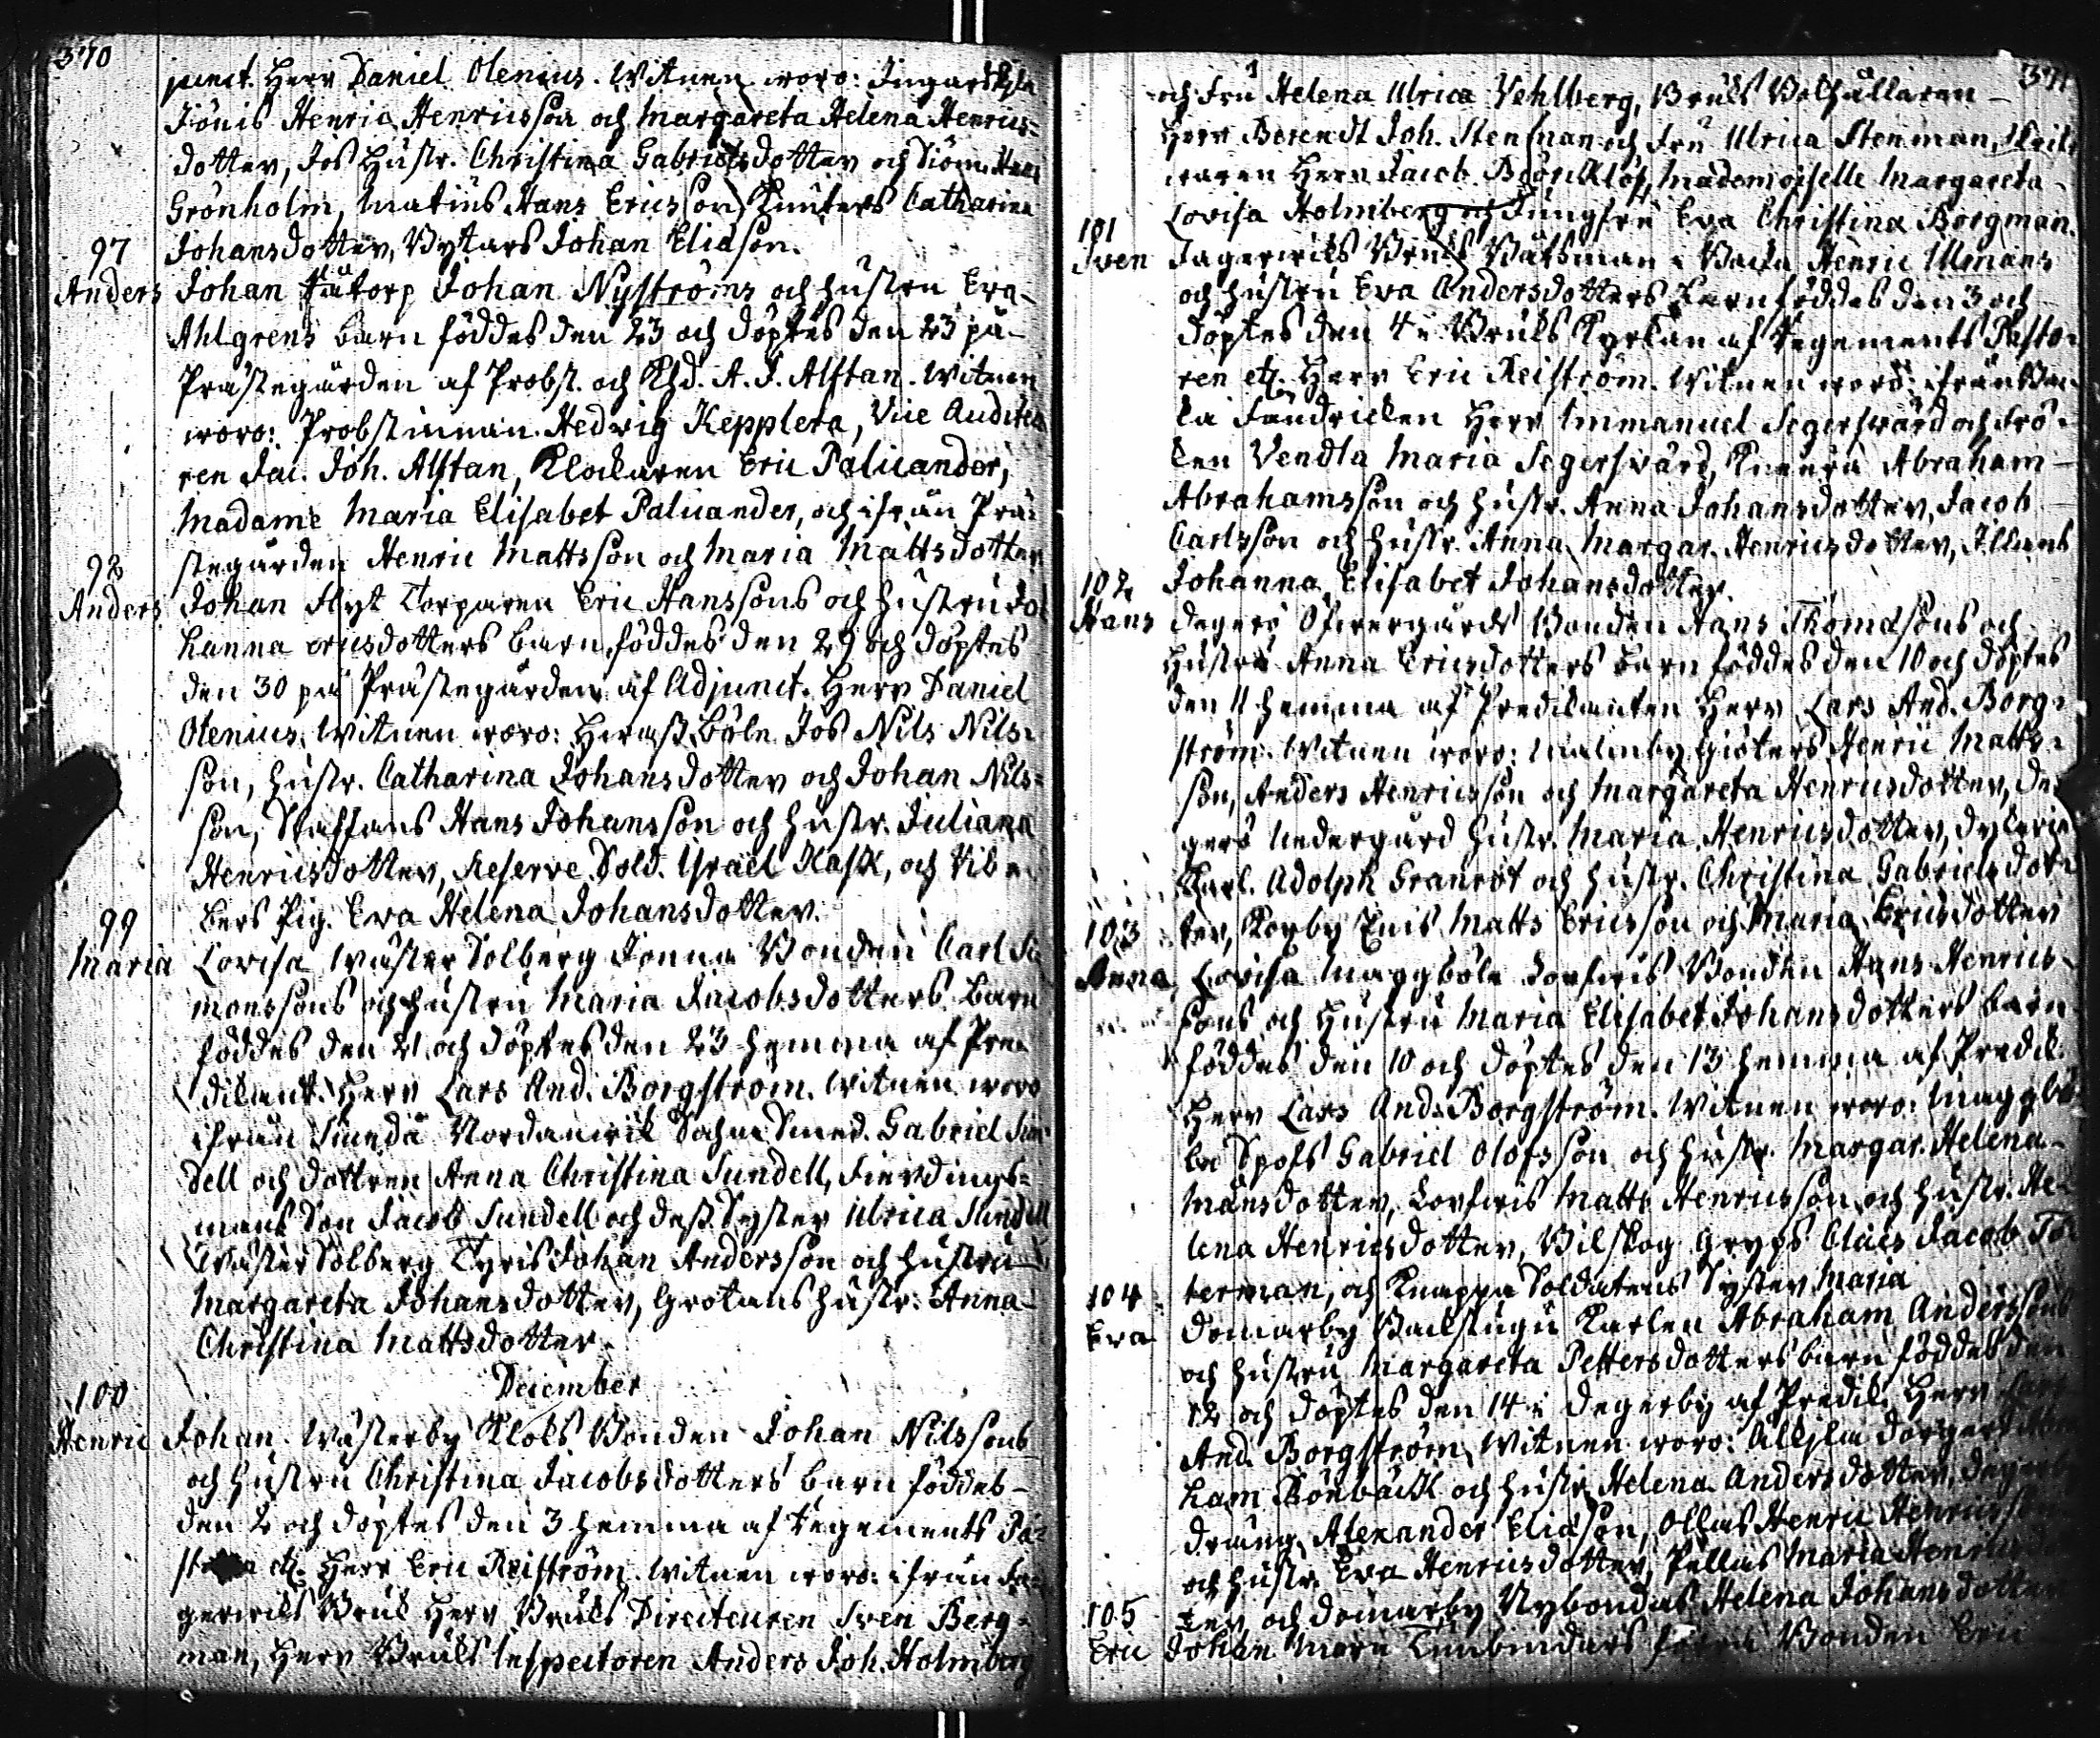 370
junct. Herr Daniel Olenius. Witnen woro: Ingarskila
Jönis Henric Henricsson och Margareta Helena Henrics=
dotter, Jos Hustr. Christina Gabrielsdotter och
Grönholm, Matius Hans Ericsson, Catharina
97
Johansdotter, Johan Eliæson.
Anders
Johan Johan Nyströms och hustru Eva
Ahlgrens barn föddes den 23 och döptes den 23 på
Prästegården af Probst. och Khd. A. J. Alftan. Witnen
woro: Probstinnan Hedvig Kepplera, Vice Audito
ren Jac. Joh. Alftan, Klockaren Eric Palicander,
Madame Maria Elisabet Palicander, och ifrån Prä=
stegården Henric Mattsson och Maria Mattsdotter
98
Anders
Johan Flyt Torparen Eric Hanssons och hustru Jo
hanna Ericsdotters barn, föddes den 29 och döptes
den 30 på Prästegården af Adjunct. Herr Daniel
Olenius. Witnen woro: böle Jos Nils Nils=
son, hustr. Catharina Johansdotter och Johan Nils=
son, Staffans Hans Johansson och hustr. Juliana
Henricsdotter, Reserve Sold. Israel Rask, och
Pig. Eva Helena Johansdotter.
99
Maria
Lovisa Wäster Solberg Jonna Bonden Carl Si
monssons och hustru Maria Jacobsdotters barn
föddes den 21 och döptes den 23 hemma af Pre=
dikant. Herr Lars And. Borgström. Witnen woro
ifrån Siundå Nordanwik Sochne Smed. Gabriel Sun
dell och dottren Anna Christina Sundell, Fierdings=
mans Son Jacob Sundell och dess Syster Ulrica Sundell
Wäster Solberg Tyris Johan Andersson och hustru
Margareta Johansdotter, Grotans hustr. Anna
Christina Mattsdotter.
December
100
Henric
Johan Wästerby Klobs Bonden Johan Nilssons
och hustru Christina Jacobsdotters barn föddes
den 2 och döptes den 3 hemma af Regements Pa=
etc. Herr Eric Reiström. Witnen woro: ifrån Fa=
gerwiks Bruk Herr Bruks Directeuren Sven Berg=
man, Herr Bruks Inspectoren Anders Joh. Holmberg
371
och Fru Helena Ulrica Vehlberg, Bruks Bokhållaren
Herr Berendt Joh. Stenman och Fru Ulrica Stenman,
Herr Jacob Björklöf, Mademoiselle Margareta
Lovisa Holmberg och Jungfru Eva Christina Borgman.
101
Sven
Fagerwiks Bruks Båtsman i Backa Henric Ulmans
och hustru Eva Andersdotters barn föddes den 3 och
döptes den 4 i Bruks Kyrkan af Regements Pasto=
ren etc. Herr Eric Reiström. Witnen woro: ifrån Bac
ka Fändricken Herr Immanuel Segersvärd och Frö=
ken Vendla Maria Segersvärd, Abraham
Abrahamsson och hustr. Anna Johansdotter, Jacob
Carlsson och hustr. Anna Margar. Henricsdotter,
102
Johanna Elisabet Johansdotter.
Hans
Degerö Öfwergårds Bonden Hans Thomassons och
hustru Anna Ericsdotters barn föddes den 10 och döptes
den 11 hemma af Predikanten Herr Lars And. Borg=
ström. Witnen woro: Malmby Giöters Henric Matts=
son, Anders Henricsson och Margareta Henricsdotter, De
gerö Nedergård hustr. Maria Henricsdotter,
Karl. Adolph Granrot och hustr. Christina Gabrielsdot=
103
ter, Korby Enis Matts Ericsson och Maria Ericsdotter
Anna
Lovisa Maggböle Bonden Hans Henrics
sons och hustru Maria Elisabet Johansdotters barn
föddes den 10 och döptes den 13 hemma af Predik.
Herr Lars And. Borgström. Witnen woro: Maggbö
le Spofs Gabriel Olofsson och hustr. Margar. Helena
Månsdotter, Matts Henricsson och hustr. He
lena Henricsdotter, Billskog Claes Jacob To
104
terman, och Knappa Soldatens Syster Maria
Eva
Domarby Backstugu Karlen Abraham Anderssons
och hustru Margareta Pettersdotters barn föddes den
12 och döptes den 14 i Degerby af Predik. Herr Lars
And. Borgström. Witnen woro:
ham och hustr. Helena Andersdotter, Degerby
dräng Alexander Eliæson, Ollas Henric Henricsson
och hustr. Eva Henricsdotter, Pellas Maria Henrics
105
ter, och Domarby Nybondas Helena Johansdotter
Eric
Johan Bonden Eric